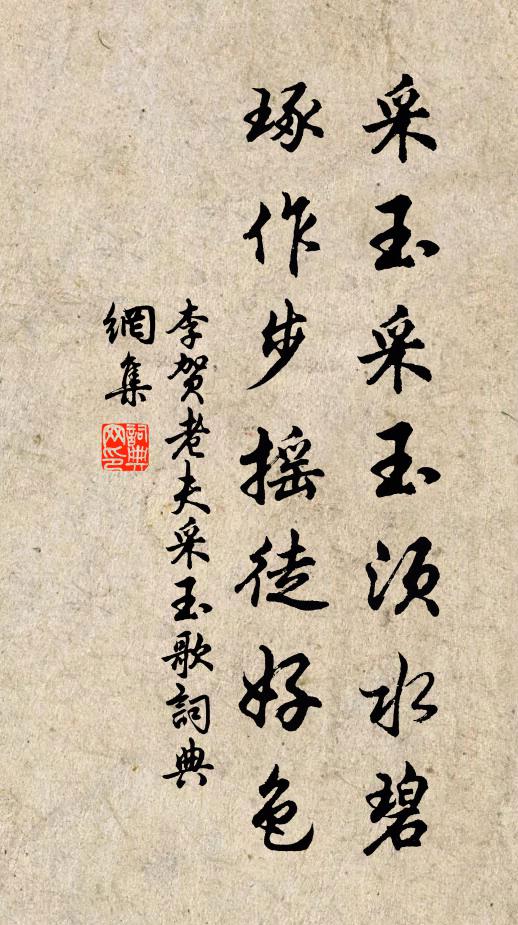 采玉采玉須水碧
琢作步摇徒好色
李賀老夫采玉歌詞典
網集
詞典
网印